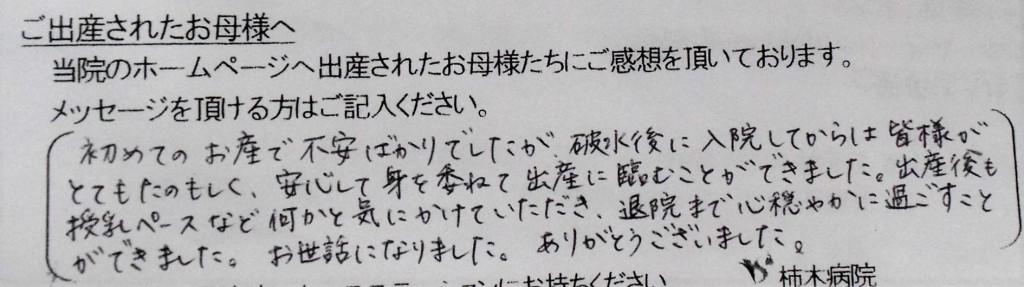 ご出産されたお母様へ
当院のホームページへ出産されたお母様たちにご感想を頂いております。
メッセージを頂ける方はご記入ください。
初めてのお産で不安ばかりでしたが、破水後に入院してからは皆様が
とてもたのもしく、安心して身を委ねて出産に臨むことができました。出産後も
授乳ペースなど何かと気にかけていただき、退院まで心穏やかに過ごすこと
ができました。お世話になりました。ありがとうございました。
にお持ちください
柿木病院